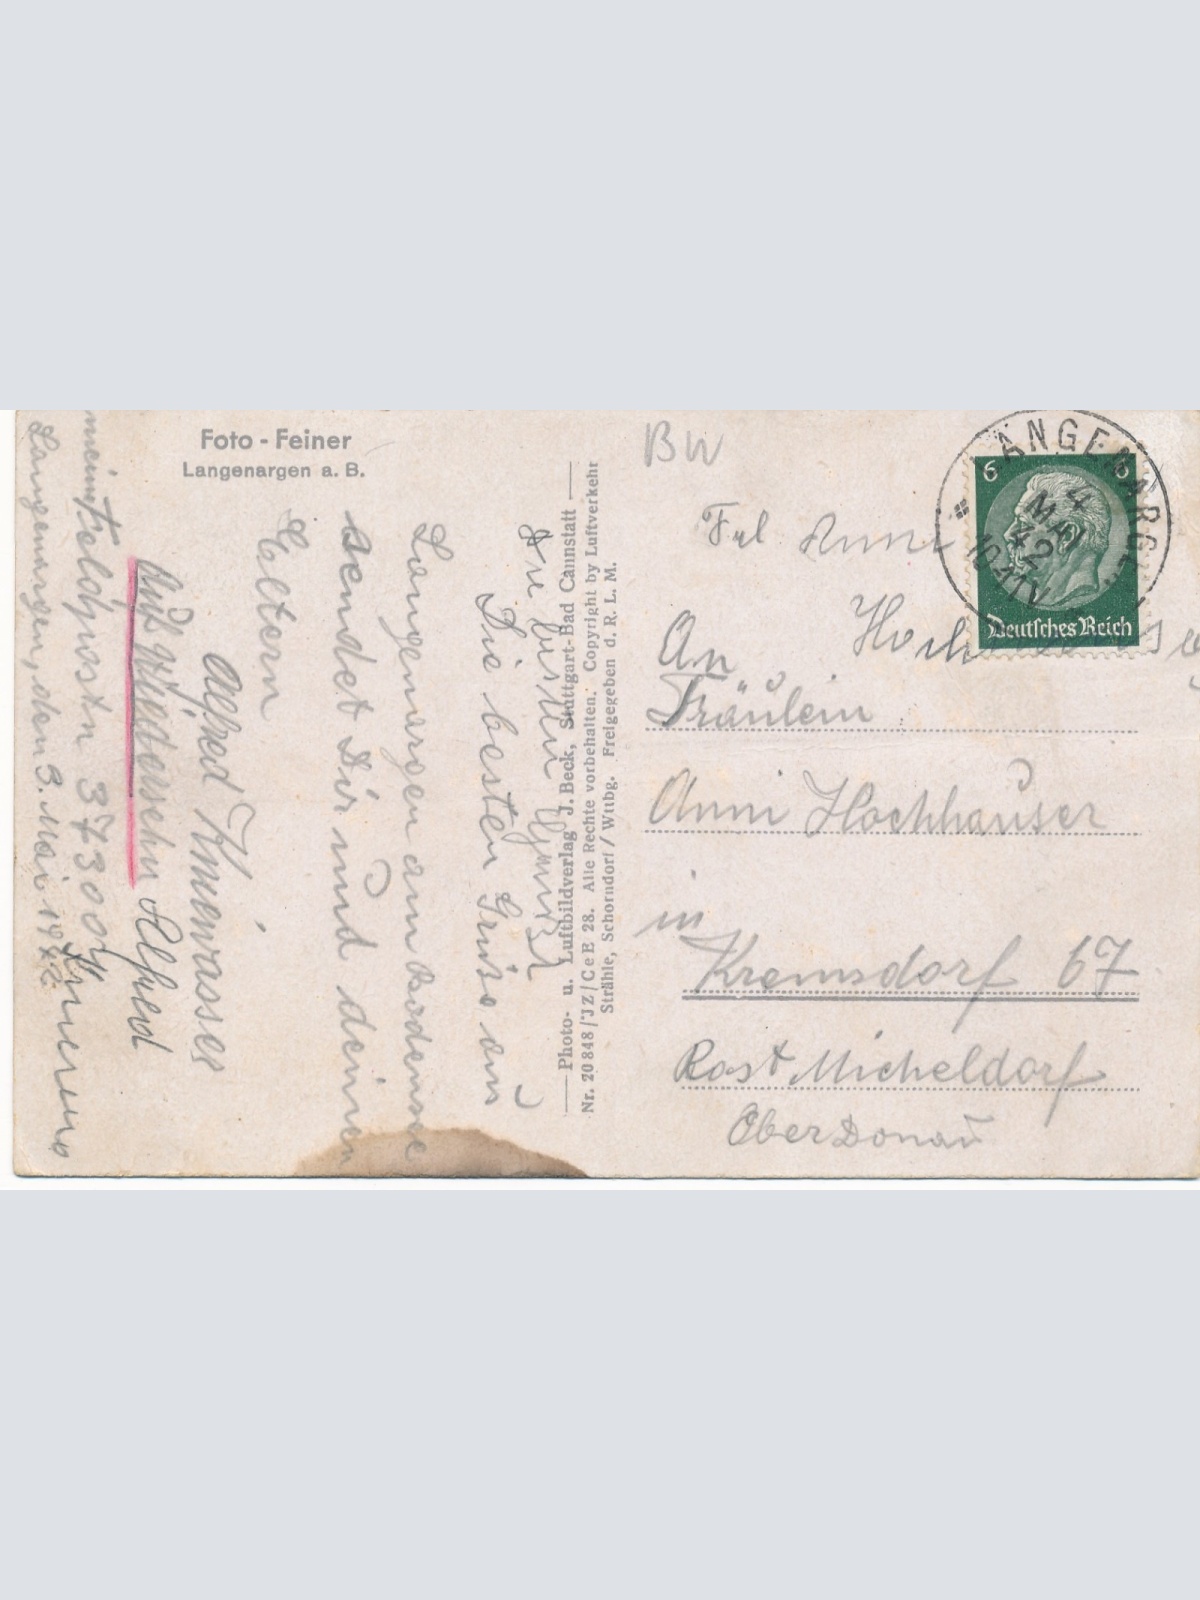 Foto - Feiner
Langenargen a. B.
Die besten Grüße aus
Langenargen am Bodensee
sendet Dir und deinen
Eltern
Alfred
Auf Wiedersehn Alfred
mein Feldpostn 37300
Langenargen, den 3. Mai 1942
Photo- u. Luftbildverlag J. Beck, Stuttgart-Bad Cannstatt
Nr. 20 848/JZ/CeE 28. Alle Rechte vorbehalten. Copyright by Luftverkehr
Strähle, Schorndorf/Wttbg. Freigegeben d. R. L. M.
BW
LANGENARGEN
4
MAI
42
6 6
Deutsches Reich
Frl Anni
An
Fräulein
Anni Hochhauser
in
Kremsdorf 67
Post Micheldorf
Oberdonau